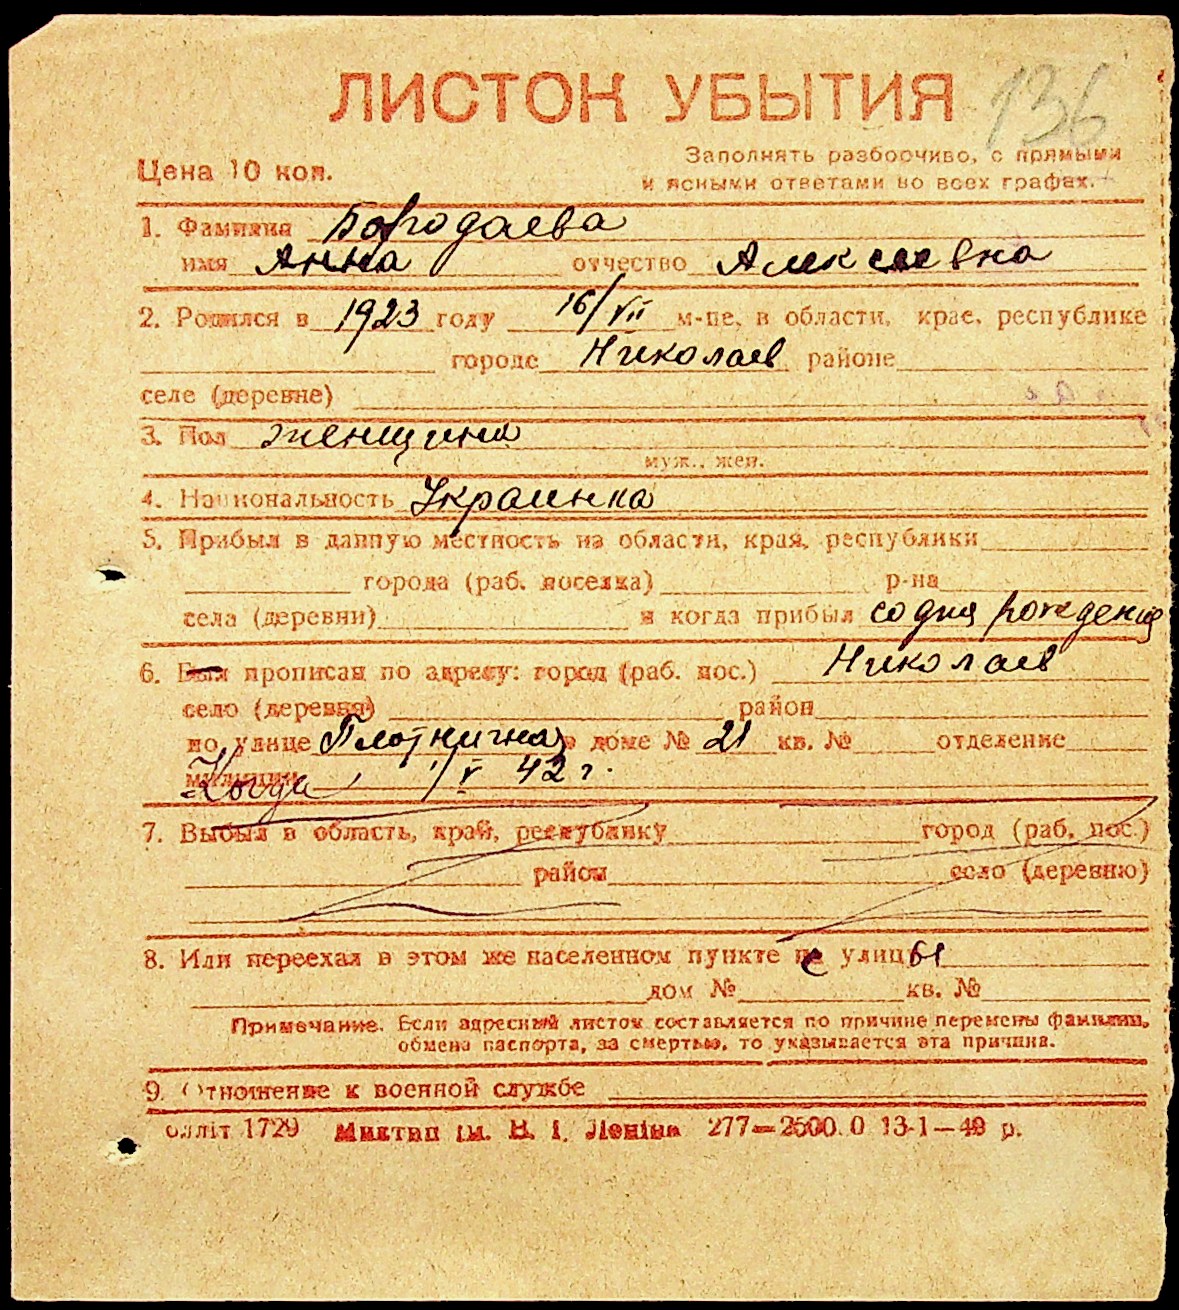 ЛИСТОК УБЫТИЯ 136
Цена 10 коп.
Заполнять разборчиво, с прямыми
и ясными ответами во всех графах.
1. Фамилия Бородаева
имя Анна отчество Алексеевна
2. Родился в 1923 году 16/VII м-це, в области, крае, республике
городе Николаев районе
селе (деревне)
3. Пол женщина
муж., жен.
4. Национальность Украинка
5. Прибыл в данную местность из области, края, республики
города (раб. поселка) р-на
села (деревни) и когда прибыл со дня рождения
6. Был прописан по адресу: город (раб. пос.) Николаев
село (деревня) район
по улице Плотничная в доме № 21 кв. № отделение
милиции Когда 1/V 42 г.
7. Выбыл в область, край, республику город (раб. пос.)
район село (деревню)
8. Или переехал в этом же населенном пункте с улицы
дом № кв. №
Примечание. Если адресный листок составляется по причине перемены фамилии,
обмена паспорта, за смертью, то указывается эта причина.
9. Отношение к военной службе
олліт 1729 Миктип ім. В. І. Леніна 277—2500.0 13-1—40 р.